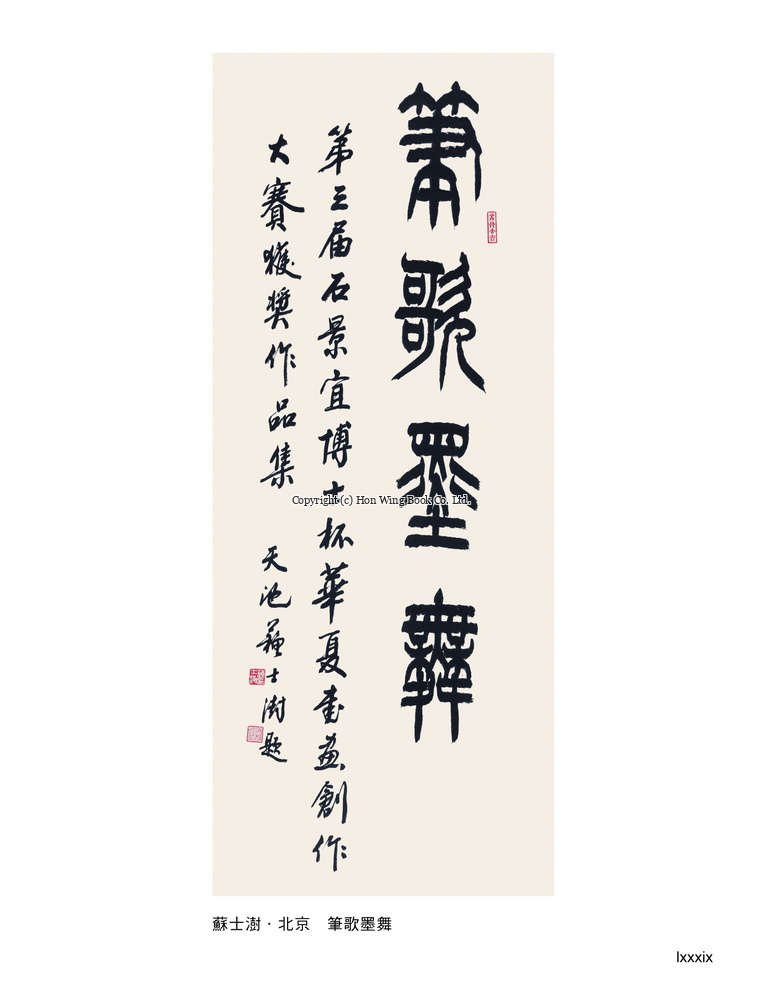 筆歌墨舞
第三届石景宜博士杯華夏書畫創作
大賽獲獎作品集
天池蘇士澍題
Copyright (c) Hon Wing Book Co. Ltd.
蘇士澍·北京　筆歌墨舞
lxxxix